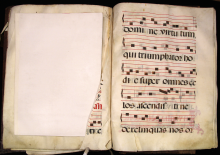 domine virtutum
qui triumphatoꝛ ho
die super omnes ce
los ascendisti ne
derelinquas nos oꝛ